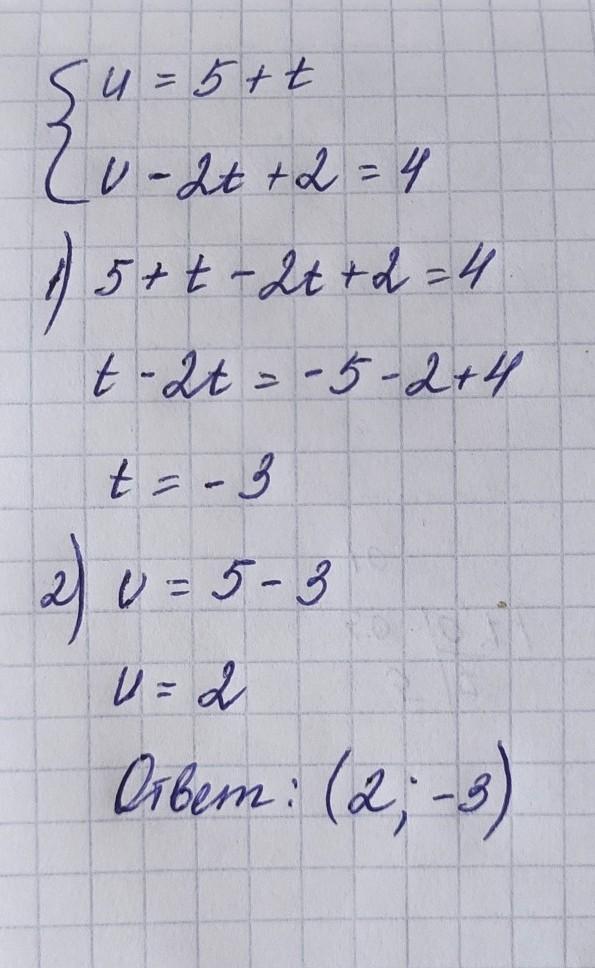 { u = 5 + t
v - 2t + 2 = 4
1) 5 + t - 2t + 2 = 4
t - 2t = -5 - 2 + 4
t = -3
2) v = 5 - 3
v = 2
Ответ: (2; -3)